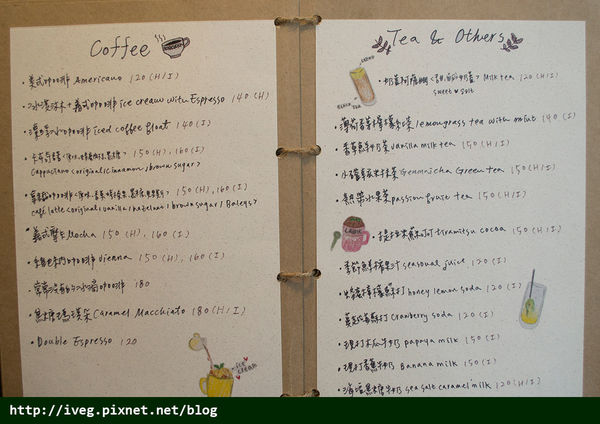 Coffee
美式咖啡 Americano 120 (H/I)
冰淇淋+義式咖啡 ice cream with Espresso 140 (H)
漂浮冰咖啡 iced coffee float 140 (I)
150 (H), 160 (I)
Cappuccino <original/cinnamon/brown sugar>
150 (H), 160 (I)
café latte <original/vanilla/hazelnut/brown sugar/Baileys>
義式摩卡 Mocha 150 (H), 160 (I)
維也納咖啡 Vienna 150 (H), 160 (I)
冰滴咖啡 180
焦糖瑪琪朵 Caramel Macchiato 180 (H/I)
Double Espresso 120
ice cream
Tea & Others
Milk tea 120 (H/I)
sweet salt
BLACK TEA
薄荷香茅檸檬紅茶 lemongrass tea with mint 140 (I)
香草鮮奶茶 vanilla milk tea 150 (H/I)
玄米茶 Genmicha Green tea 150 (H/I)
熱帶水果茶 passion fruit tea 150 (H/I)
提拉米蘇可可 tiramisu cocoa 150 (H/I)
季節鮮果汁 seasonal juice 120 (I)
蜂蜜檸檬蘇打 honey lemon soda 120 (I)
蔓越莓蘇打 Cranberry soda 120 (I)
現打木瓜牛奶 papaya milk 150 (I)
現打香蕉牛奶 Banana milk 150 (I)
海鹽焦糖牛奶 sea salt caramel milk 120 (H/I)
http://iveg.pixnet.net/blog